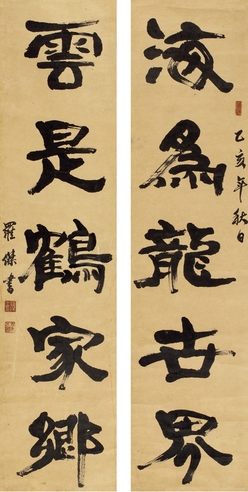 海為龍世界
乙亥年秋日
雲是鶴家鄉
羅傑書